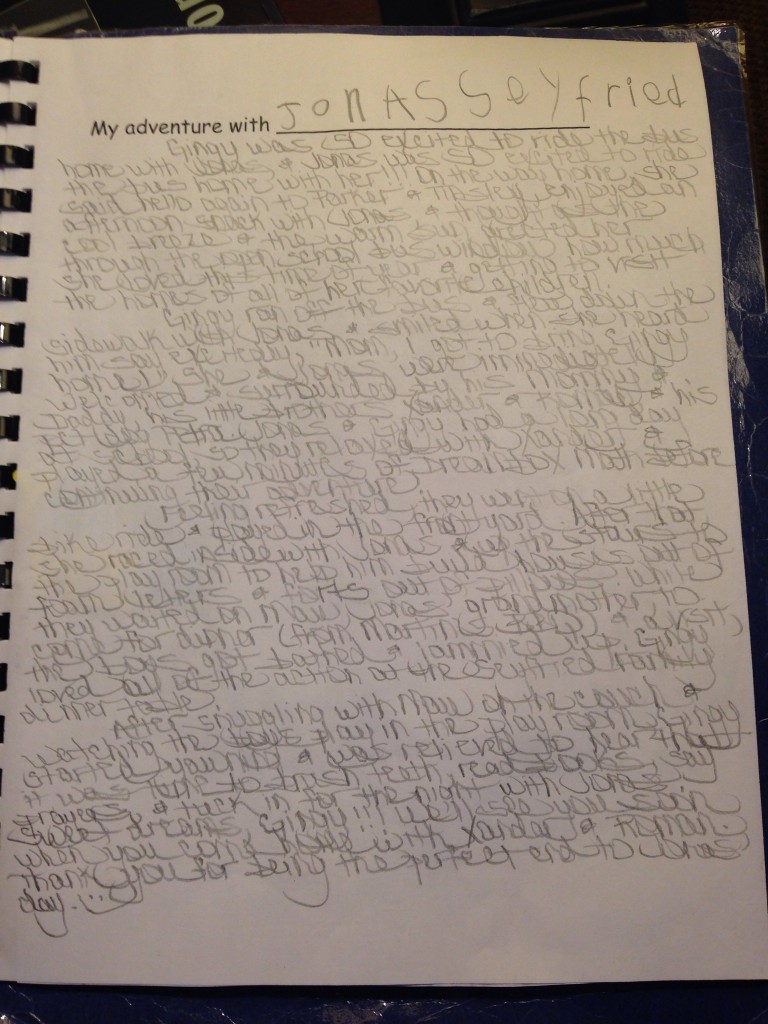 OP
My adventure with JONAS Seyfried
Gingy was SO excited to ride the bus
home with Jonas & Jonas was SO excited to ride
the bus home with her!! On the way home, she
said hello again to Parker & Tinsley, enjoyed an
afternoon snack with Jonas & thought as the
cool breeze & the warm sun greeted her
through the open school bus windows how much
she loved this time of year & getting to visit
the homes of all of her favorite children.
Gingy ran off the bus & down the
sidewalk with Jonas & smiled when she heard
him say excitedly, "Mom, I got to bring Gingy
home!" She & Jonas were immediately
welcomed & surrounded by his mommy &
daddy, his little brothers Xander & Roman, & his
Jonas & Gingy had a long day
at school so they relaxed with Xander &
played a few minutes of math before
continuing their adventure.
Feeling refreshed, they went on a little
bike ride & played in the front yard. After that
she raced inside with Jonas & up the stairs to
the play room to help him build houses out of
foam letters & forts out of pillows. While
they waited on Maw, Jonas' grandmother to
come for dinner (from Martin's) & a visit,
the boys got bathed & jammied up. Gingy
loved all of the action at the Seyfried family
dinner table.
After snuggling with Maw on the couch &
watching the boys play in the play room, Gingy
started yawning & was relieved to hear that
it was time to brush teeth, read books, say
prayers & tuck in for the night with Jonas.
Sweet dreams, Gingy!!! We'll see you soon
when you come home with Xander & Roman.
Thank you for being the perfect end to Jonas'
day. :)